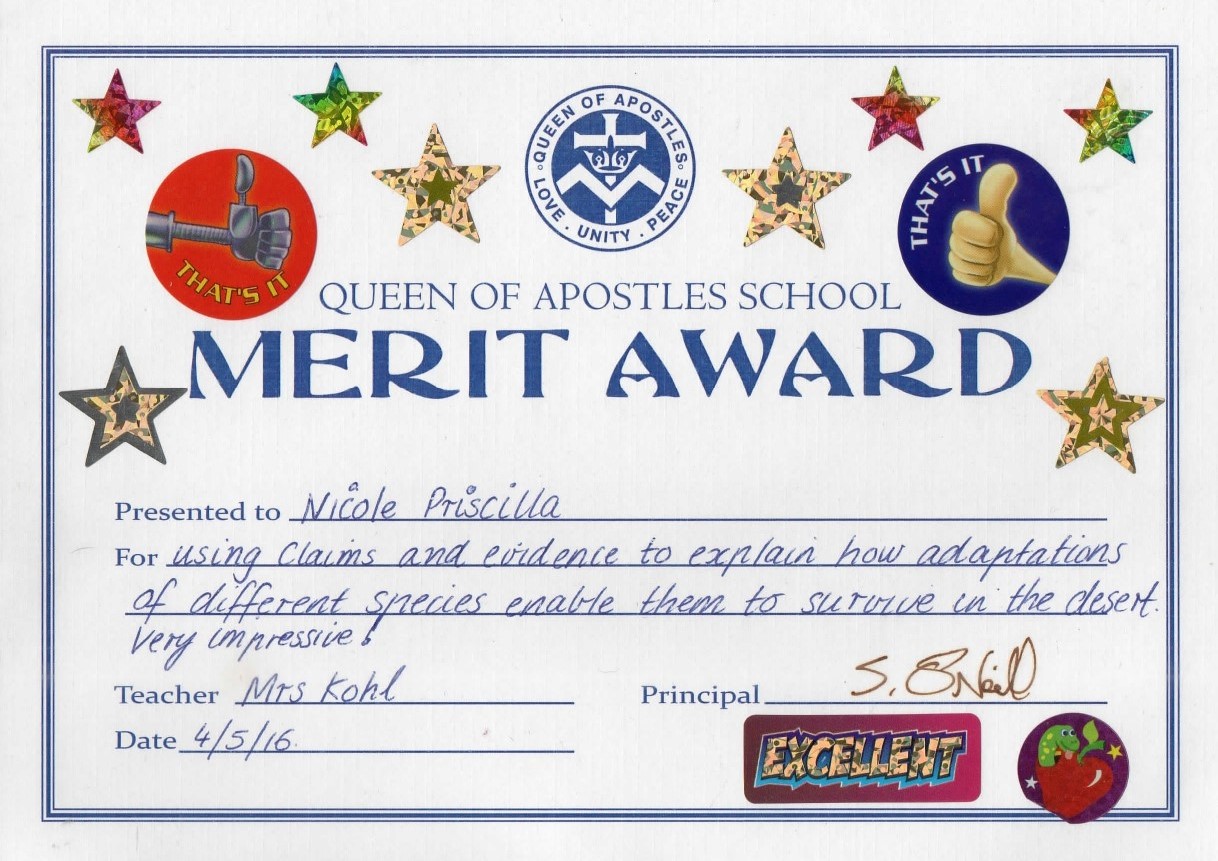 QUEEN OF APOSTLES
LOVE . UNITY . PEACE
THAT'S IT
THAT'S IT
QUEEN OF APOSTLES SCHOOL
MERIT AWARD
Presented to Nicole Priscilla
For using Claims and evidence to explain how adaptations
of different species enable them to survive in the desert.
Very impressive!
Teacher Mrs Kohl
Principal S. O'Neill
Date 4/5/16.
EXCELLENT